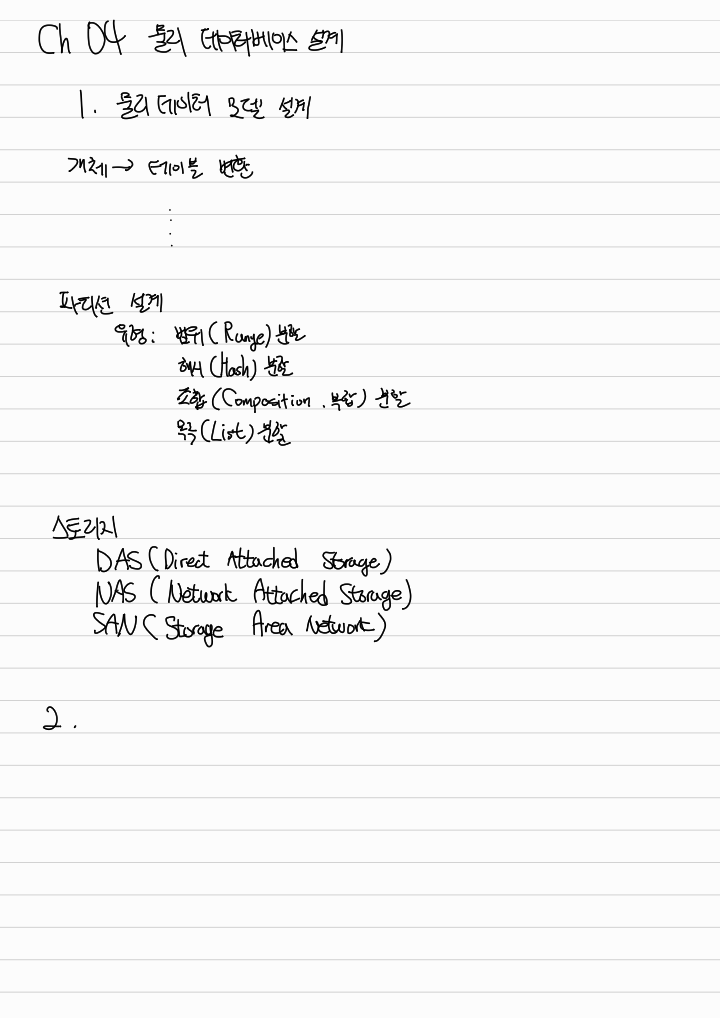 Ch 04 물리 데이터베이스 설계
1. 물리 데이터 모델 설계
개체 → 테이블 변환
파티션 설계
유형: 범위(Range) 분할
해시(Hash) 분할
조합(Composition, 복합) 분할
목록(List) 분할
스토리지
DAS(Direct Attached Storage)
NAS (Network Attached Storage)
SAN( Storage Area Network)
2.